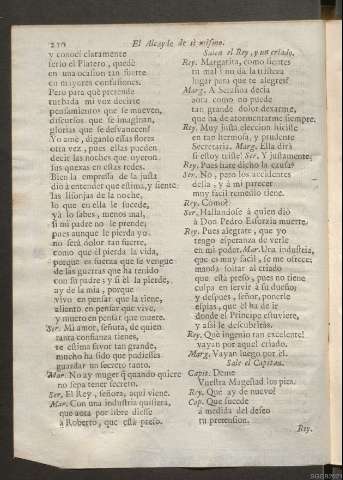 210
El Alcayde de si mismo.
y conoci claramente
ser yo el Platero, quedè
en una ocasion tan fuerte
en mayores confusiones.
Pero para què pretende
turbada mi voz decirte
pensamientos que se mueven,
discursos que se imaginan,
glorias que se desvanecen?
Yo amè, diganlo essas flores
otra vez, pues ellas pueden
decir las noches que oyeron
sus quexas en estas redes.
Bien la empresa de la justa
diò à entender que estima, y siente
las lisonjas de la noche,
lo que en ella le sucede,
yà lo sabes, menos mal,
si mi padre no le prende;
pues aunque le pierda yo,
no serà dolor tan fuerte,
como que el pierda la vida,
porque es fuerza que se vengue
de las guerras que ha tenido
con su padre; y si èl la pierde,
ay de la mia, porque
vivo en pensar que la tiene,
aliento en pensar que vive,
y muero en pensar que muere.
Ser. Mi amor, señora, de quien
tanta confianza tienes,
te estima favor tan grande,
mucho ha sido que pudiesses
guardar un secreto tanto.
Mar. No ay muger q̃ quando quiere
no sepa tener secreto.
Ser. El Rey, señora, aqui viene.
Mar. Con una industria quisiera,
que aora por libre diesse
à Roberto, que està preso.
Salen el Rey, y un criado.
Rey. Margarita, como sientes
tu mal? un dà la tristeza
lugar para que te alegres?
Marg. A Serafina decia
aora como no puede
tan grande dolor dexarme,
que ha de atormentarme siempre.
Rey. Muy justa eleccion hiciste
en tan hermosa, y prudente
Secretaria. Marg. Ella dirà
si estoy triste? Ser. Y justamente.
Rey. Pues hate dicho la causa?
Ser. No, pero los accidentes
della, y à mi parecer
muy facil remedio tiene.
Rey. Como?
Ser. Hallandose à quien diò
à Don Pedro Esforcia muerte.
Rey. Pues alegrate, que yo
tengo esperanza de verle
en mi poder. Mar. Una industria,
que es muy facil, se me ofrece;
manda soltar al criado
que està preso, pues no tiene
culpa en servir à su dueño;
y despues, señor, ponerle
espias, que èl ha de ir
donde el Principe estuviere,
y assi le descubriràs.
Rey. Què ingenio tan excelente!
vayan por aquel criado.
Marg. Vayan luego por èl.
Sale el Capitan.
Capit. Deme
Vuestra Magestad los pies.
Rey. Què ay de nuevo?
Cap. Que sucede
à medida del deseo
tu pretension.
Rey.